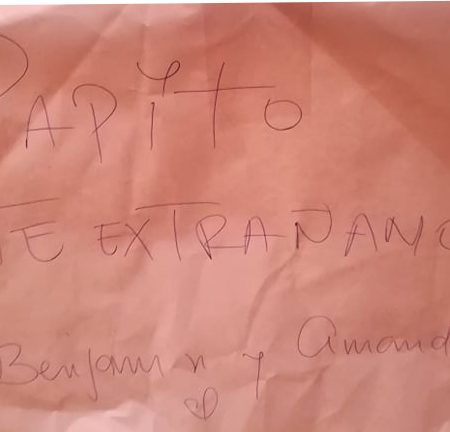 PAPITO
TE EXTRAÑAMO
Benjamin y Amand